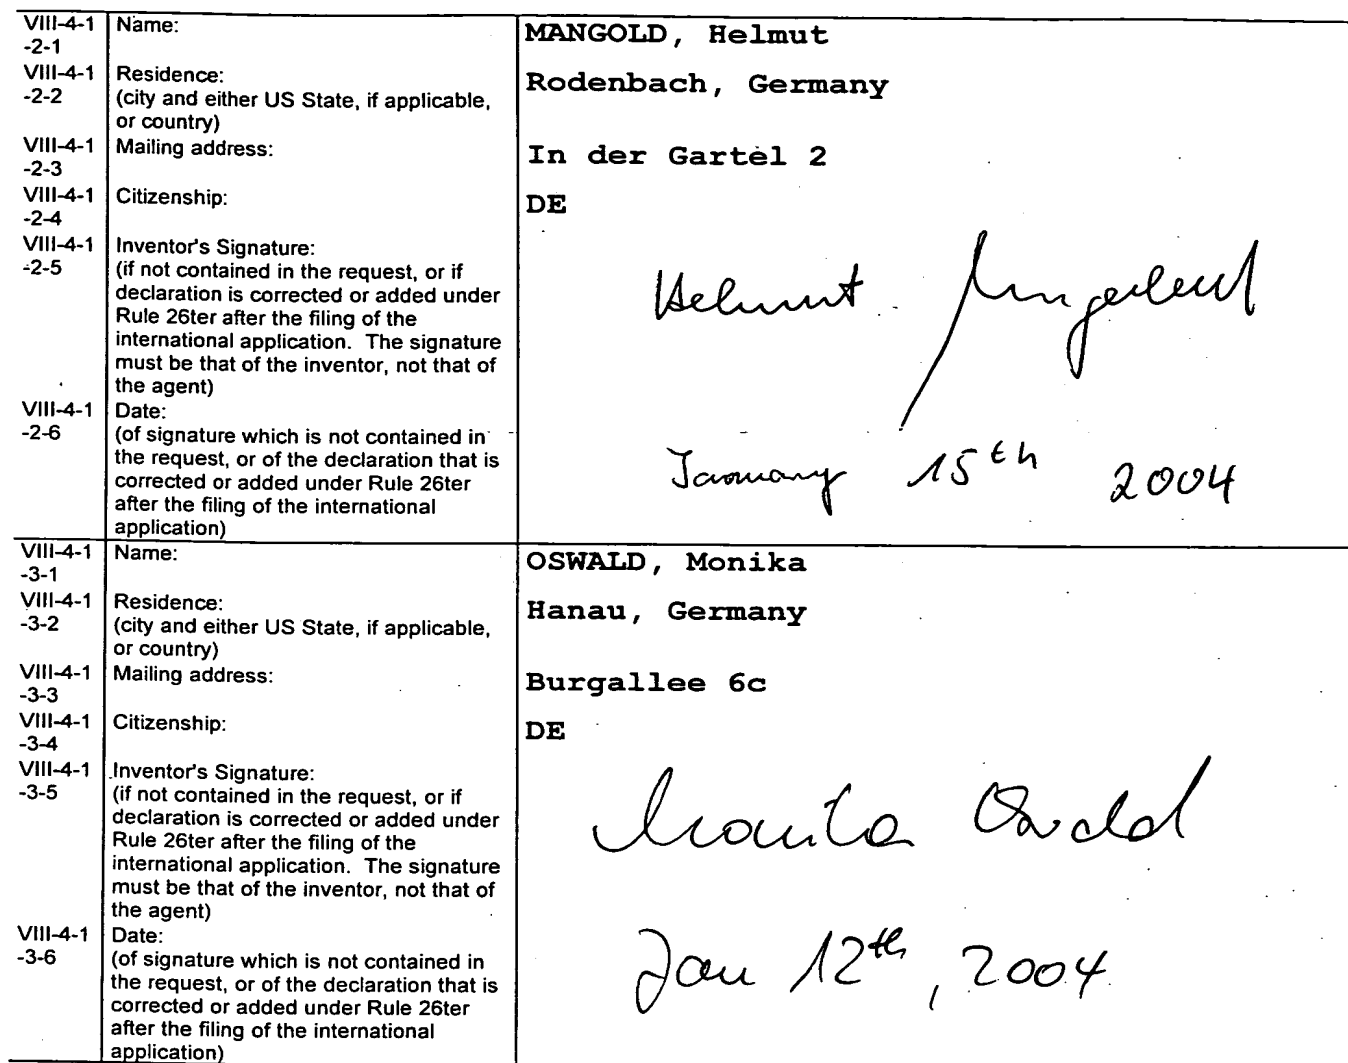 VIII-4-1 Name: MANGOLD, Helmut
-2-1
VIII-4-1 Residence: Rodenbach, Germany
-2-2 (city and either US State, if applicable,
or country)
VIII-4-1 Mailing address: In der Gartel 2
-2-3
VIII-4-1 Citizenship: DE
-2-4
VIII-4-1 Inventor's Signature:
-2-5 (if not contained in the request, or if
declaration is corrected or added under
Rule 26ter after the filing of the
international application. The signature
must be that of the inventor, not that of
the agent)
Helmut Mangold
VIII-4-1 Date:
-2-6 (of signature which is not contained in
the request, or of the declaration that is
corrected or added under Rule 26ter
after the filing of the international
application)
January 15th 2004
VIII-4-1 Name: OSWALD, Monika
-3-1
VIII-4-1 Residence: Hanau, Germany
-3-2 (city and either US State, if applicable,
or country)
VIII-4-1 Mailing address: Burgallee 6c
-3-3
VIII-4-1 Citizenship: DE
-3-4
VIII-4-1 Inventor's Signature:
-3-5 (if not contained in the request, or if
declaration is corrected or added under
Rule 26ter after the filing of the
international application. The signature
must be that of the inventor, not that of
the agent)
Monika Oswald
VIII-4-1 Date:
-3-6 (of signature which is not contained in
the request, or of the declaration that is
corrected or added under Rule 26ter
after the filing of the international
application)
Jan 12th, 2004